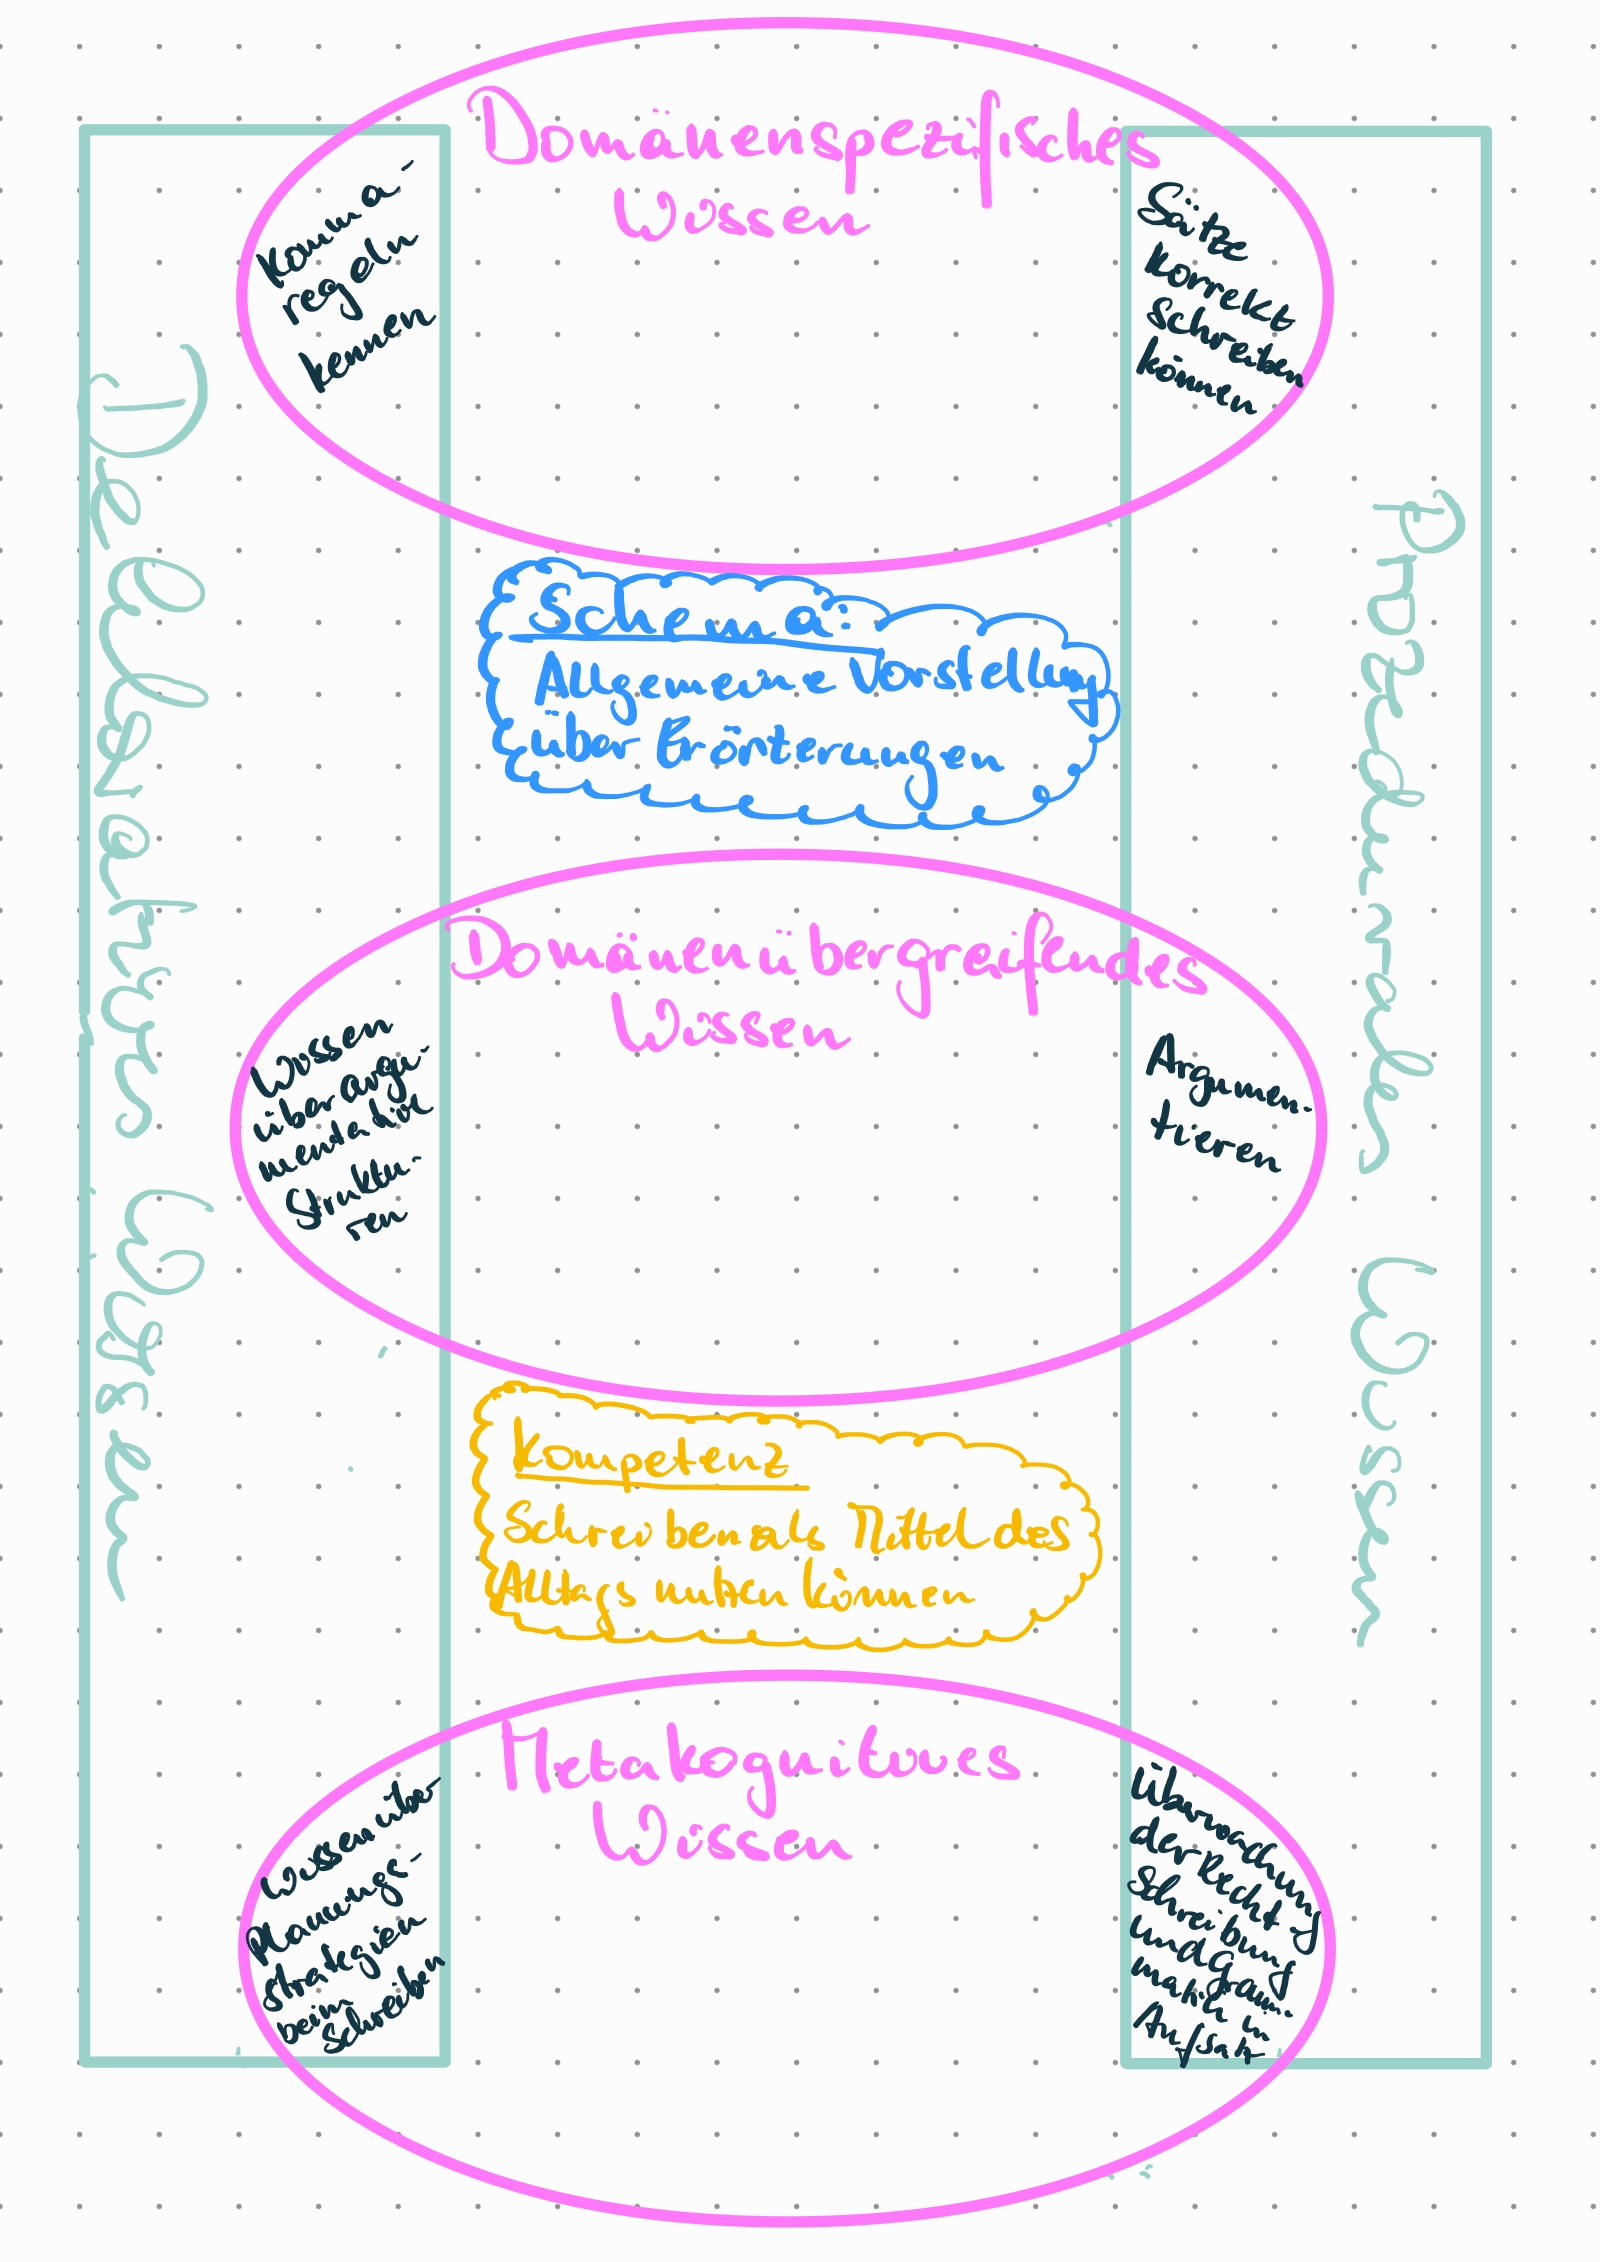 Domänenspezifisches
Wissen
Komma-
regeln
kennen
Sätze
korrekt
schreiben
können
Deklaratives Wissen
Prozedurales Wissen
Schema:
Allgemeine Vorstellung
über Erörterungen
Domänenübergreifendes
Wissen
Wissen
über argu-
mentative
Struktu-
ren
Argumen-
tieren
Kompetenz
Schreiben als Mittel des
Alltags nutzen können
Metakognitives
Wissen
Wissen über
Planungs-
strategien
beim
Schreiben
Überwachung
der Recht-
schreibung
und Gram-
matik in
Aufsatz